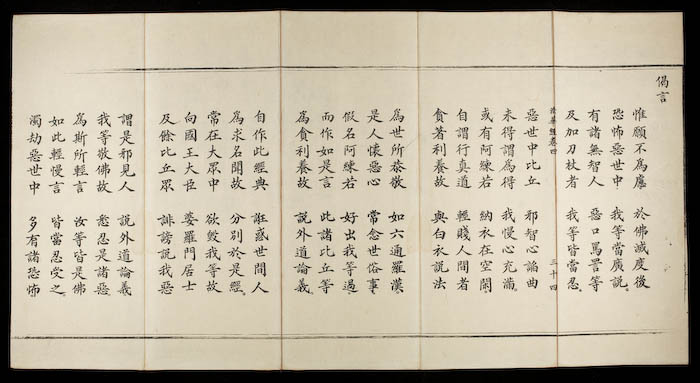 偈言
惟願不為慮　於佛滅度後
恐怖惡世中　我等當廣說。
有諸無智人　惡口罵詈等
及加刀杖者　我等皆當忍
法華經卷四　三十四
惡世中比丘　邪智心諂曲
未得謂為得　我慢心充滿
或有阿練若　納衣在空閑
自謂行真道　輕賤人間者
貪著利養故　與白衣說法
為世所恭敬　如六通羅漢
是人懷惡心　常念世俗事
假名阿練若　好出我等過
而作如是言　此諸比丘等
為貪利養故　說外道論義
自作此經典　誑惑世間人
為求名聞故　分別於是經
常在大眾中　欲毀我等故
向國王大臣　婆羅門居士
及餘比丘眾　誹謗說我惡
謂是邪見人　說外道論義
我等敬佛故　悉忍是諸惡
為斯所輕言　汝等皆是佛
如此輕慢言　皆當忍受之
濁劫惡世中　多有諸恐怖